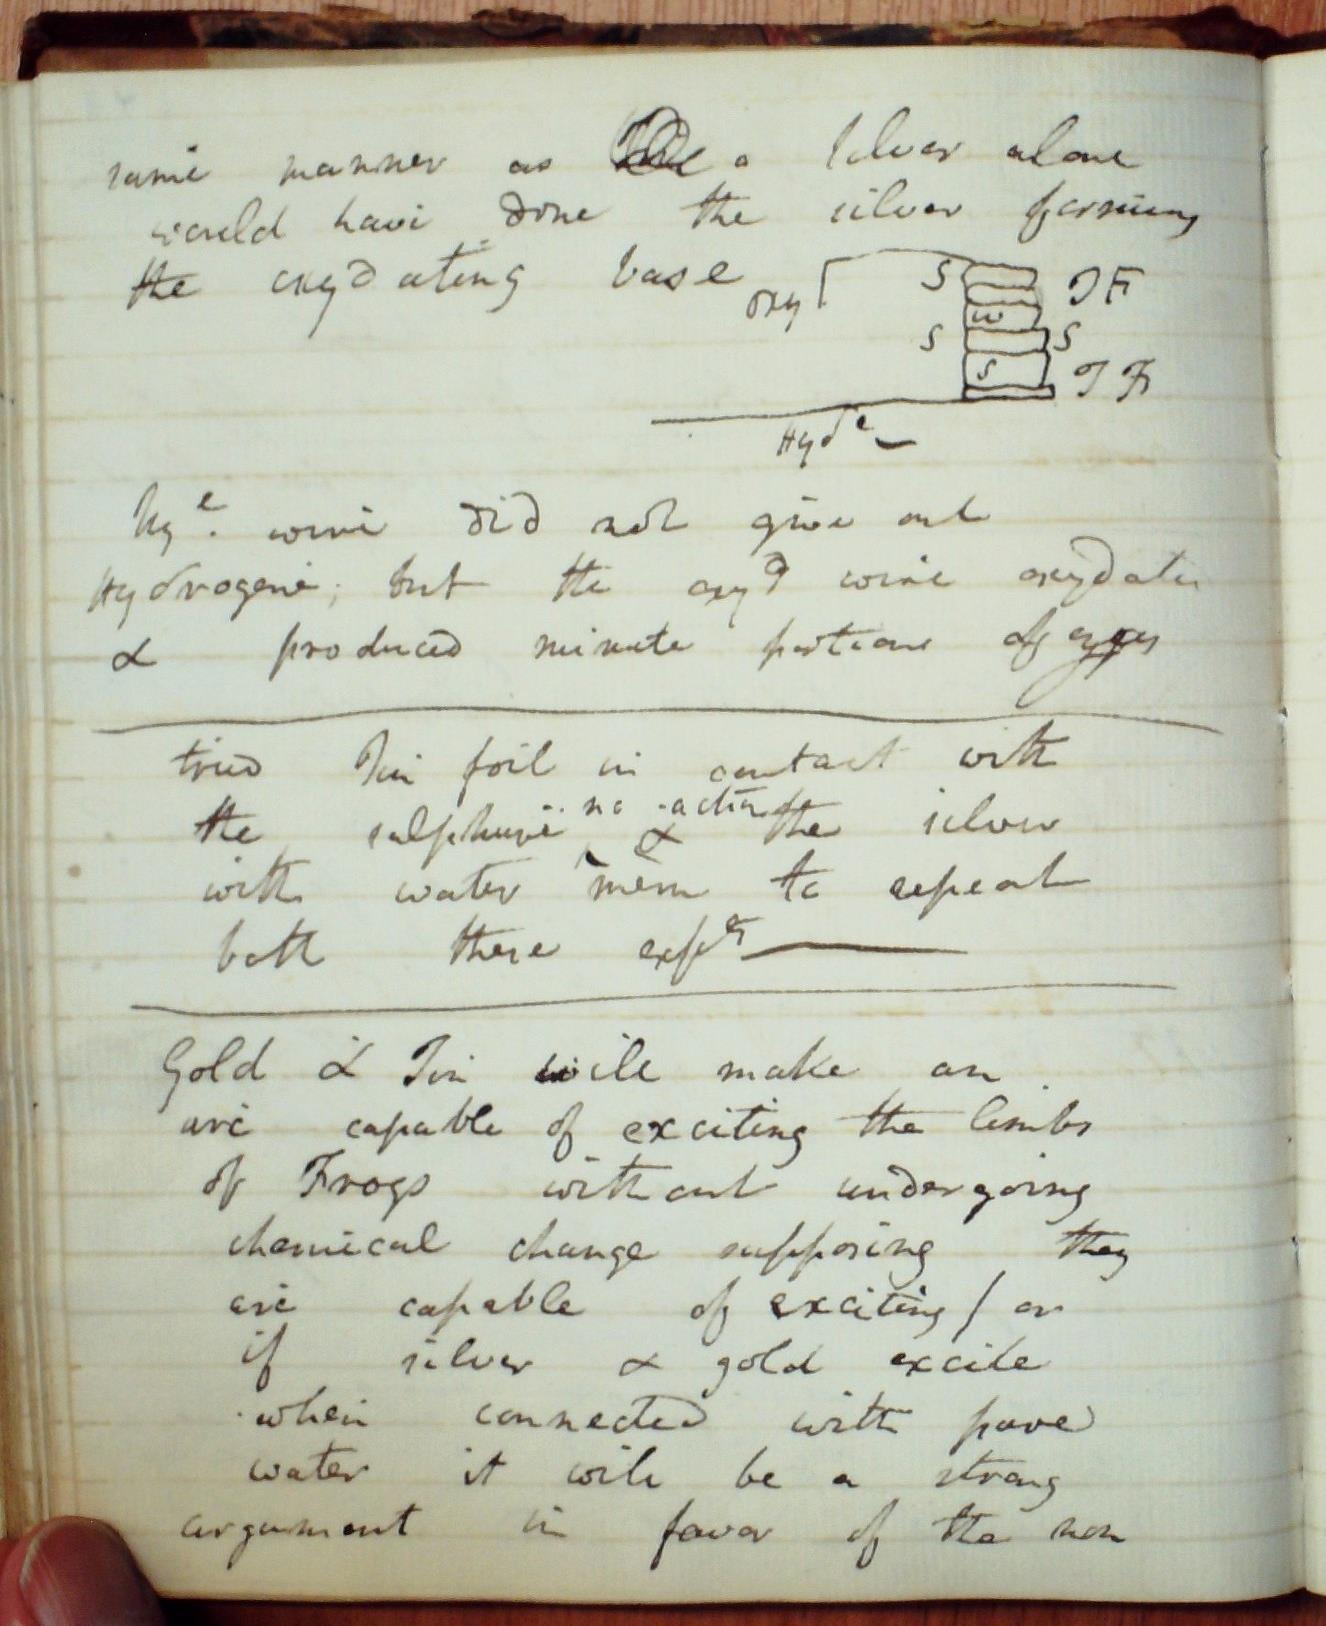 same manner as a silver alone
would have done the silver forming
the oxydating base
oxy S T F
w
S S
S T F
Hyd e
Hy e. wire did not give out
Hydrogene; but the oxy d wire oxydates
& produced minute portions of
tried Tin foil in contact with
no action
the sulphure & the silver
with water mem to repeat
both these exp ts
Gold & Tin will make an
arc capable of exciting the limbs
of Frogs without undergoing
chemical change supposing they
are capable of exciting / or
if silver & gold excite
when connected with pure
water it will be a strong
argument in favor of the non